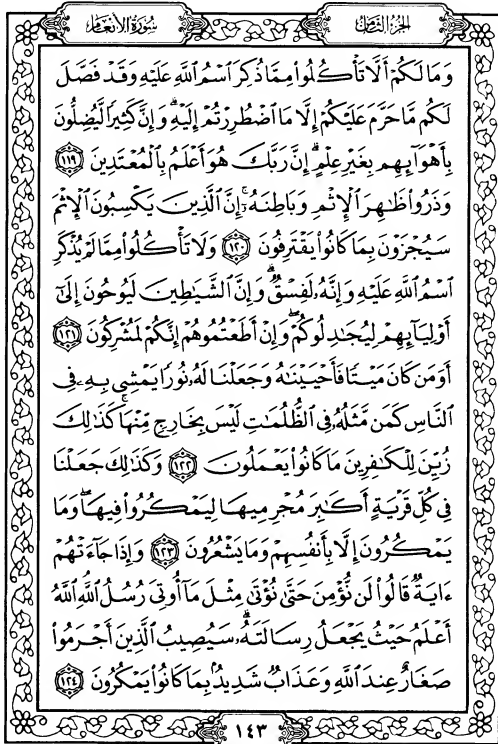 سُورَةُ الأَنعَامِ
الجُزْءُ الثَّامِنُ
وَمَا لَكُمْ أَلَّا تَأْكُلُوا۟ مِمَّا ذُكِرَ ٱسْمُ ٱللَّهِ عَلَيْهِ وَقَدْ فَصَّلَ
لَكُم مَّا حَرَّمَ عَلَيْكُمْ إِلَّا مَا ٱضْطُرِرْتُمْ إِلَيْهِ ۗ وَإِنَّ كَثِيرًا لَّيُضِلُّونَ
بِأَهْوَآئِهِم بِغَيْرِ عِلْمٍ ۗ إِنَّ رَبَّكَ هُوَ أَعْلَمُ بِٱلْمُعْتَدِينَ ١١٩
وَذَرُوا۟ ظَٰهِرَ ٱلْإِثْمِ وَبَاطِنَهُۥٓ ۚ إِنَّ ٱلَّذِينَ يَكْسِبُونَ ٱلْإِثْمَ
سَيُجْزَوْنَ بِمَا كَانُوا۟ يَقْتَرِفُونَ ١٢٠ وَلَا تَأْكُلُوا۟ مِمَّا لَمْ يُذْكَرِ
ٱسْمُ ٱللَّهِ عَلَيْهِ وَإِنَّهُۥ لَفِسْقٌ ۗ وَإِنَّ ٱلشَّيَٰطِينَ لَيُوحُونَ إِلَىٰٓ
أَوْلِيَآئِهِمْ لِيُجَٰدِلُوكُمْ ۖ وَإِنْ أَطَعْتُمُوهُمْ إِنَّكُمْ لَمُشْرِكُونَ ١٢١
أَوَمَن كَانَ مَيْتًا فَأَحْيَيْنَٰهُ وَجَعَلْنَا لَهُۥ نُورًا يَمْشِى بِهِۦ فِى
ٱلنَّاسِ كَمَن مَّثَلُهُۥ فِى ٱلظُّلُمَٰتِ لَيْسَ بِخَارِجٍ مِّنْهَا ۚ كَذَٰلِكَ
زُيِّنَ لِلْكَٰفِرِينَ مَا كَانُوا۟ يَعْمَلُونَ ١٢٢ وَكَذَٰلِكَ جَعَلْنَا
فِى كُلِّ قَرْيَةٍ أَكَٰبِرَ مُجْرِمِيهَا لِيَمْكُرُوا۟ فِيهَا ۖ وَمَا
يَمْكُرُونَ إِلَّا بِأَنفُسِهِمْ وَمَا يَشْعُرُونَ ١٢٣ وَإِذَا جَآءَتْهُمْ
ءَايَةٌ قَالُوا۟ لَن نُّؤْمِنَ حَتَّىٰ نُؤْتَىٰ مِثْلَ مَآ أُوتِىَ رُسُلُ ٱللَّهِ ۘ ٱللَّهُ
أَعْلَمُ حَيْثُ يَجْعَلُ رِسَالَتَهُۥ ۗ سَيُصِيبُ ٱلَّذِينَ أَجْرَمُوا۟
صَغَارٌ عِندَ ٱللَّهِ وَعَذَابٌ شَدِيدٌۢ بِمَا كَانُوا۟ يَمْكُرُونَ ١٢٤
١٤٣